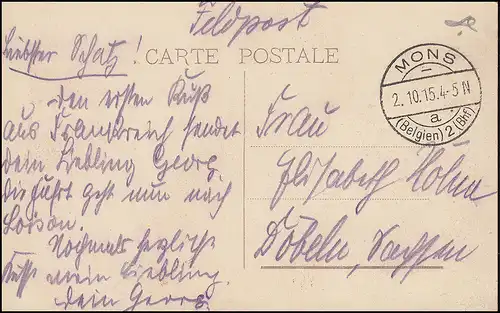 Feldpost
CARTE POSTALE
Liebster Schatz!
Den ersten Kuß
aus Frankreich sendet
dein Liebling Georg.
die Fahrt geht nun nach
Loison.
Nochmals herzliche
Küsse mein Liebling.
dein Georg
MONS
2.10.15.4-5 N
a
(Belgien) 2 (Bhf)
Frau
Elisabeth
Döbeln, Sachsen